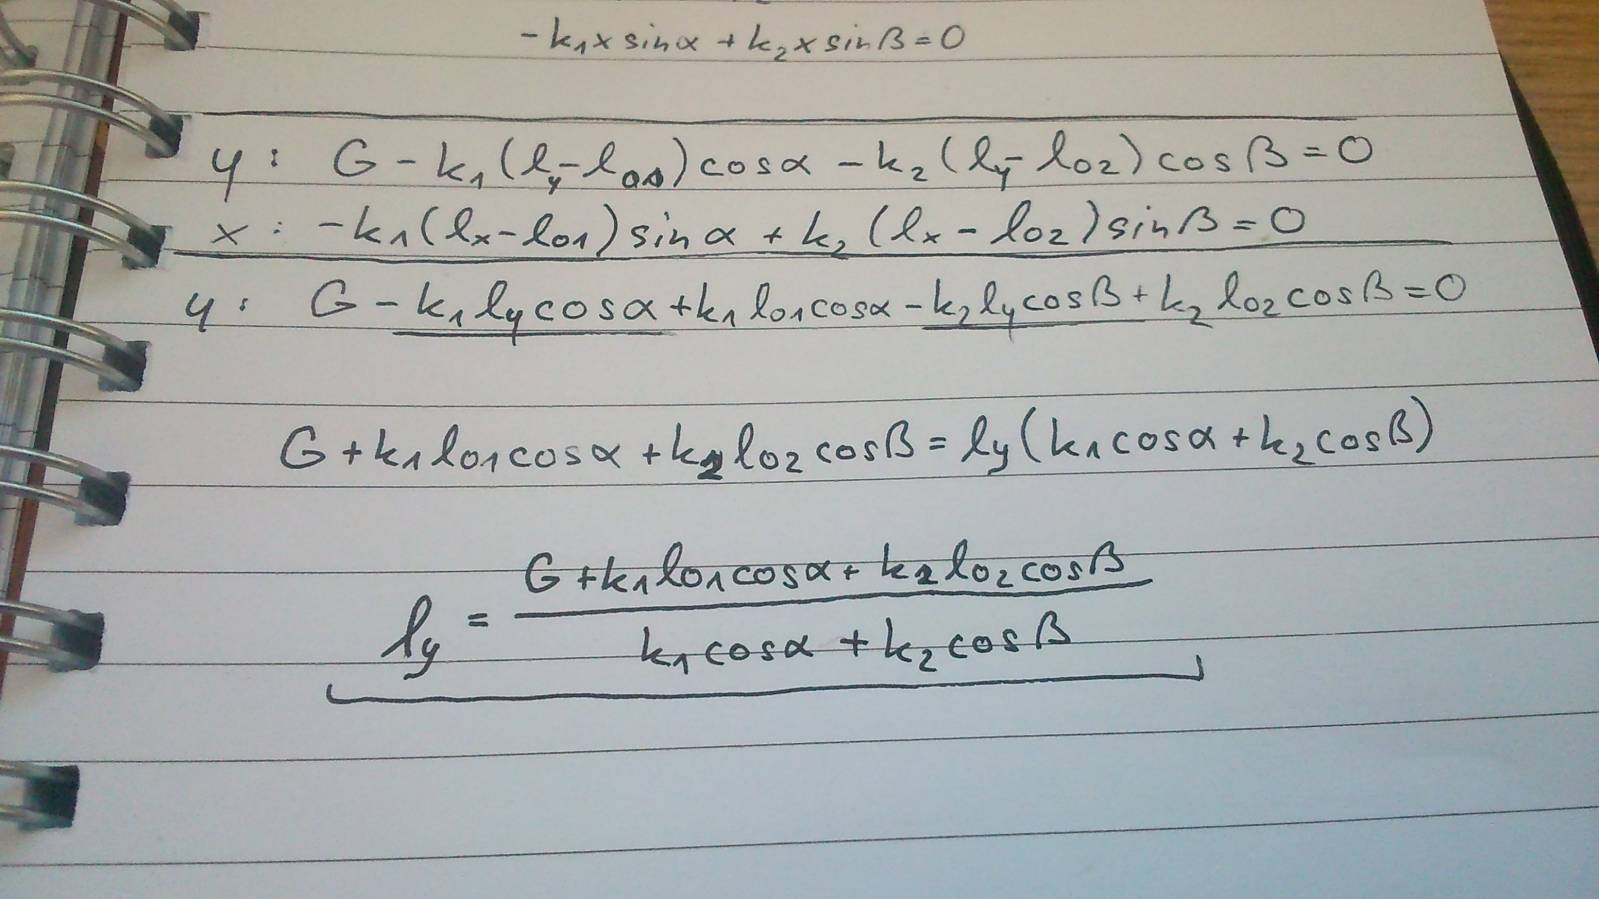 -k₁x sinα + k₂x sinβ = 0
y: G - k₁(ly - l₀₁)cosα - k₂(ly - l₀₂)cosβ = 0
x: -k₁(lx - l₀₁)sinα + k₂(lx - l₀₂)sinβ = 0
y: G - k₁lycosα + k₁l₀₁cosα - k₂lycosβ + k₂l₀₂cosβ = 0
G + k₁l₀₁cosα + k₂l₀₂cosβ = ly(k₁cosα + k₂cosβ)
ly = G + k₁l₀₁cosα + k₂l₀₂cosβ
k₁cosα + k₂cosβ